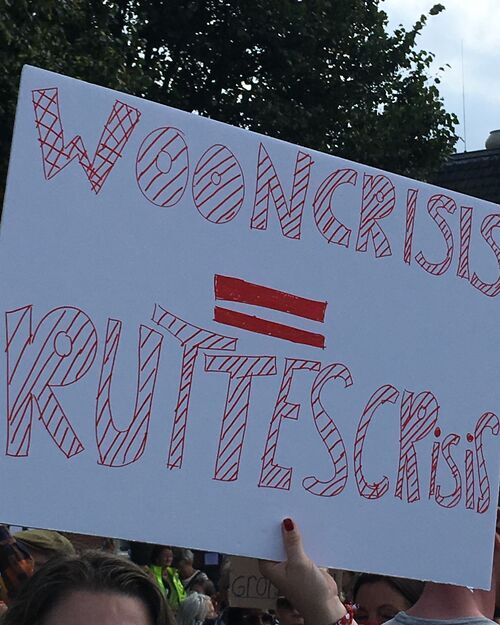 WOONCRISIS
=
RUTTESCRisiS